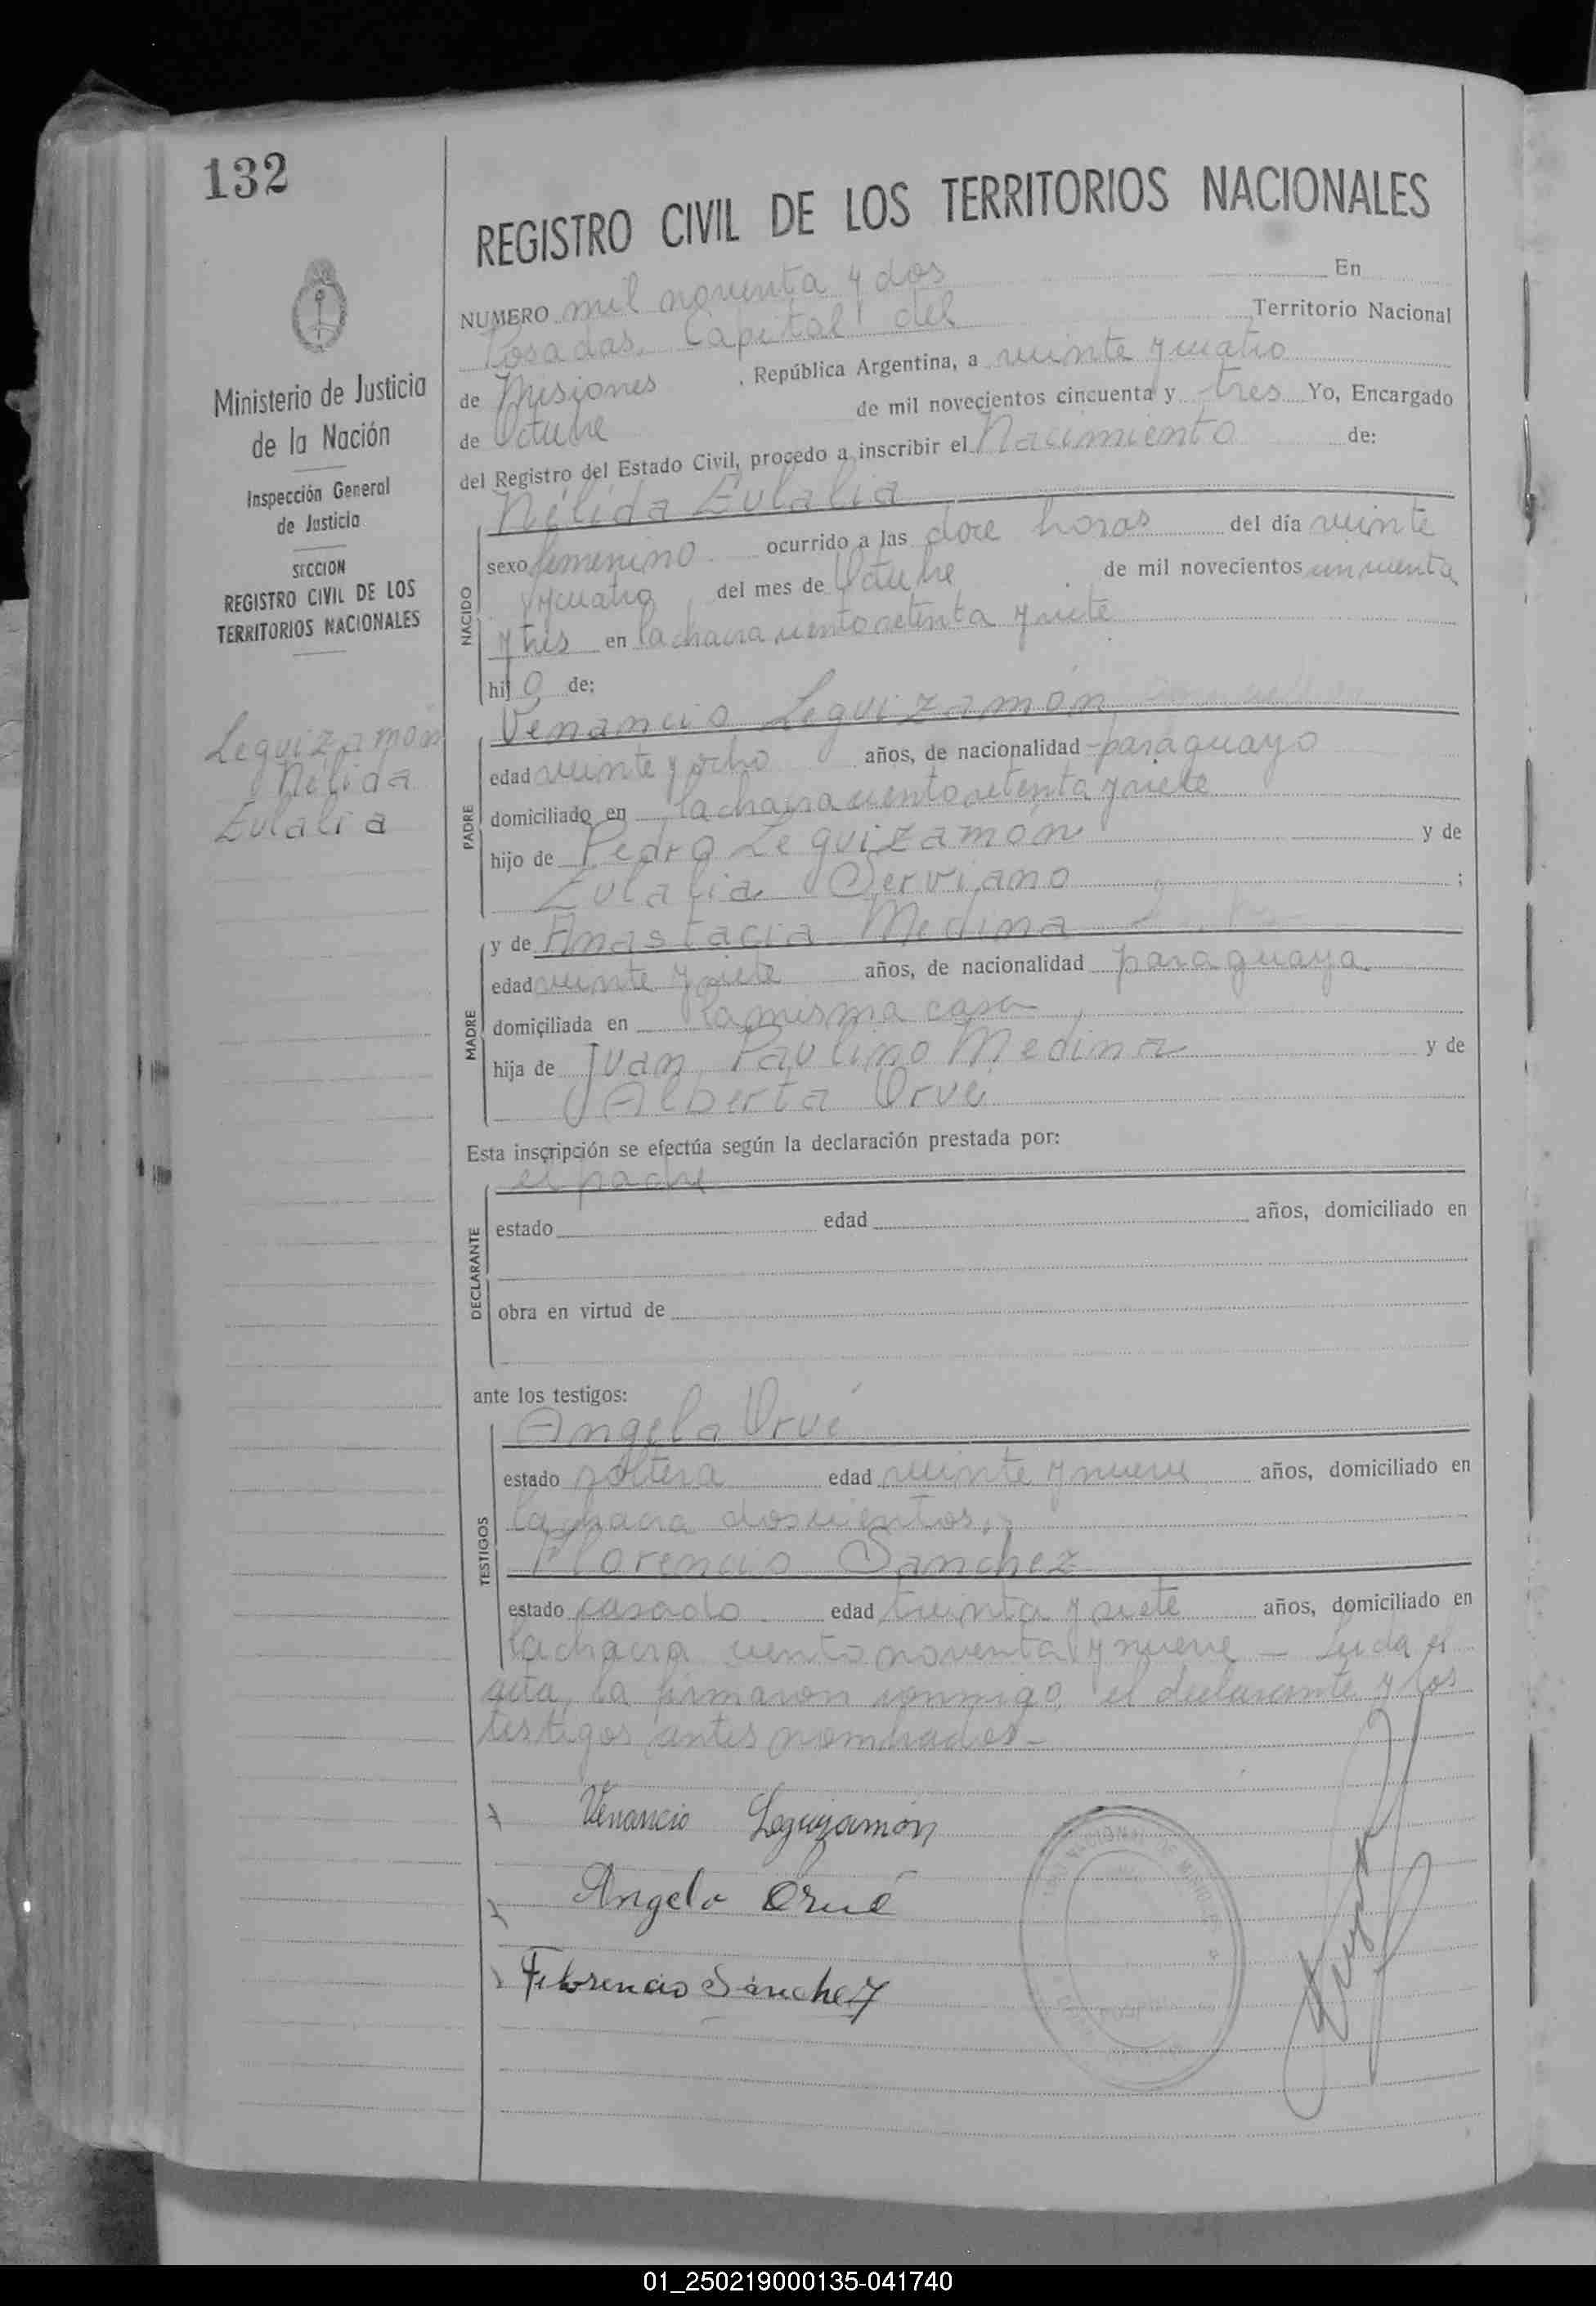 132
REGISTRO CIVIL DE LOS TERRITORIOS NACIONALES
Ministerio de Justicia
de la Nación
Inspección General
de Justicia
SECCION
REGISTRO CIVIL DE LOS
TERRITORIOS NACIONALES
Leguizamón
Nélida
Eulalia
NUMERO mil noventa y dos En
Posadas, Capital del Territorio Nacional
de Misiones , República Argentina, a veinte y cuatro
de Octubre de mil novecientos cincuenta y tres Yo, Encargado
del Registro del Estado Civil, procedo a inscribir el Nacimiento de:
Nélida Eulalia
NACIDO
sexo femenino ocurrido a las doce horas del día veinte
y cuatro del mes de Octubre de mil novecientos cincuenta
y tres en la chacra ciento setenta y siete
hija de:
Venancio Leguizamón
PADRE
edad veinte y ocho años, de nacionalidad paraguayo
domiciliado en la chacra ciento setenta y siete
hijo de Pedro Leguizamón y de
Eulalia Serviano ;
y de Anastacia Medina
MADRE
edad veinte y siete años, de nacionalidad paraguaya
domiciliada en la misma casa
hija de Juan Paulino Medina y de
Alberta Orué
Esta inscripción se efectúa según la declaración prestada por:
el padre
DECLARANTE
estado edad años, domiciliado en
obra en virtud de
ante los testigos:
Angela Orué
TESTIGOS
estado soltera edad veinte y nueve años, domiciliado en
la chacra doscientos.
Florencio Sanchez
estado casado edad treinta y siete años, domiciliado en
la chacra ciento noventa y nueve - Leida el
acta, la firmaron conmigo, el declarante y los
testigos antes nombrados-
Venancio Leguizamón
Angela Orué
Florencio Sánchez
01_250219000135-041740